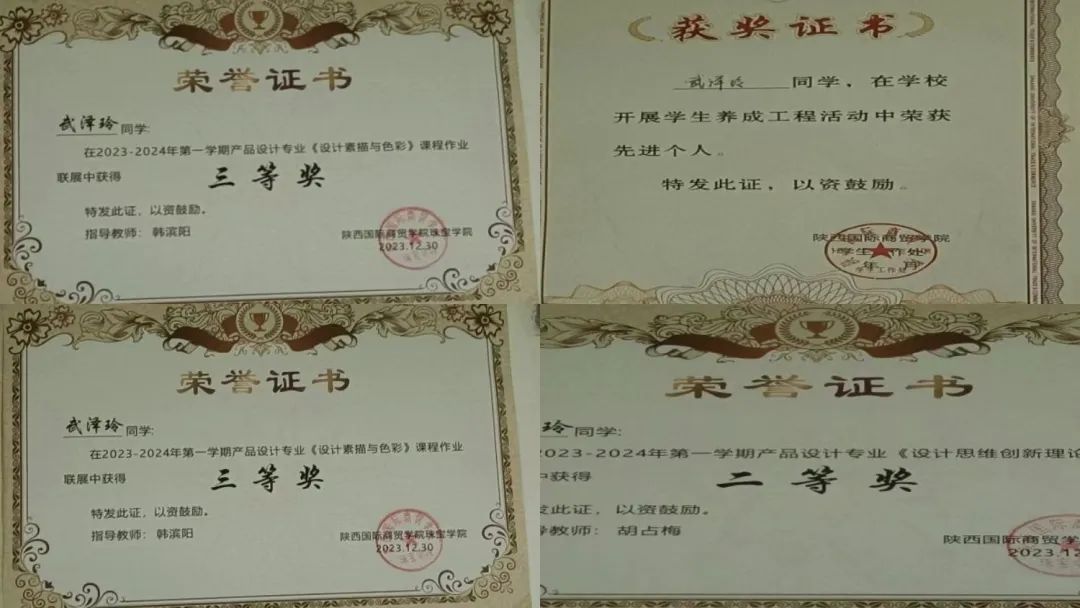 荣誉证书
武泽玲同学:
在2023-2024年第一学期产品设计专业《设计素描与色彩》课程作业
联展中获得 三等奖
特发此证，以资鼓励。
指导教师：韩滨阳
陕西国际商贸学院珠宝学院
2023.12.30
获奖证书
武泽玲同学，在学校
开展学生养成工程活动中荣获
先进个人。
特发此证，以资鼓励。
陕西国际商贸学院
学生工作处
年 月
荣誉证书
武泽玲同学:
在2023-2024年第一学期产品设计专业《设计素描与色彩》课程作业
联展中获得 三等奖
特发此证，以资鼓励。
指导教师：韩滨阳
陕西国际商贸学院珠宝学院
2023.12.30
荣誉证书
玲同学:
2023-2024年第一学期产品设计专业《设计思维创新理论
中获得 二等奖
发此证，以资鼓励。
导教师：胡占梅
陕西国际商贸学
2023.12